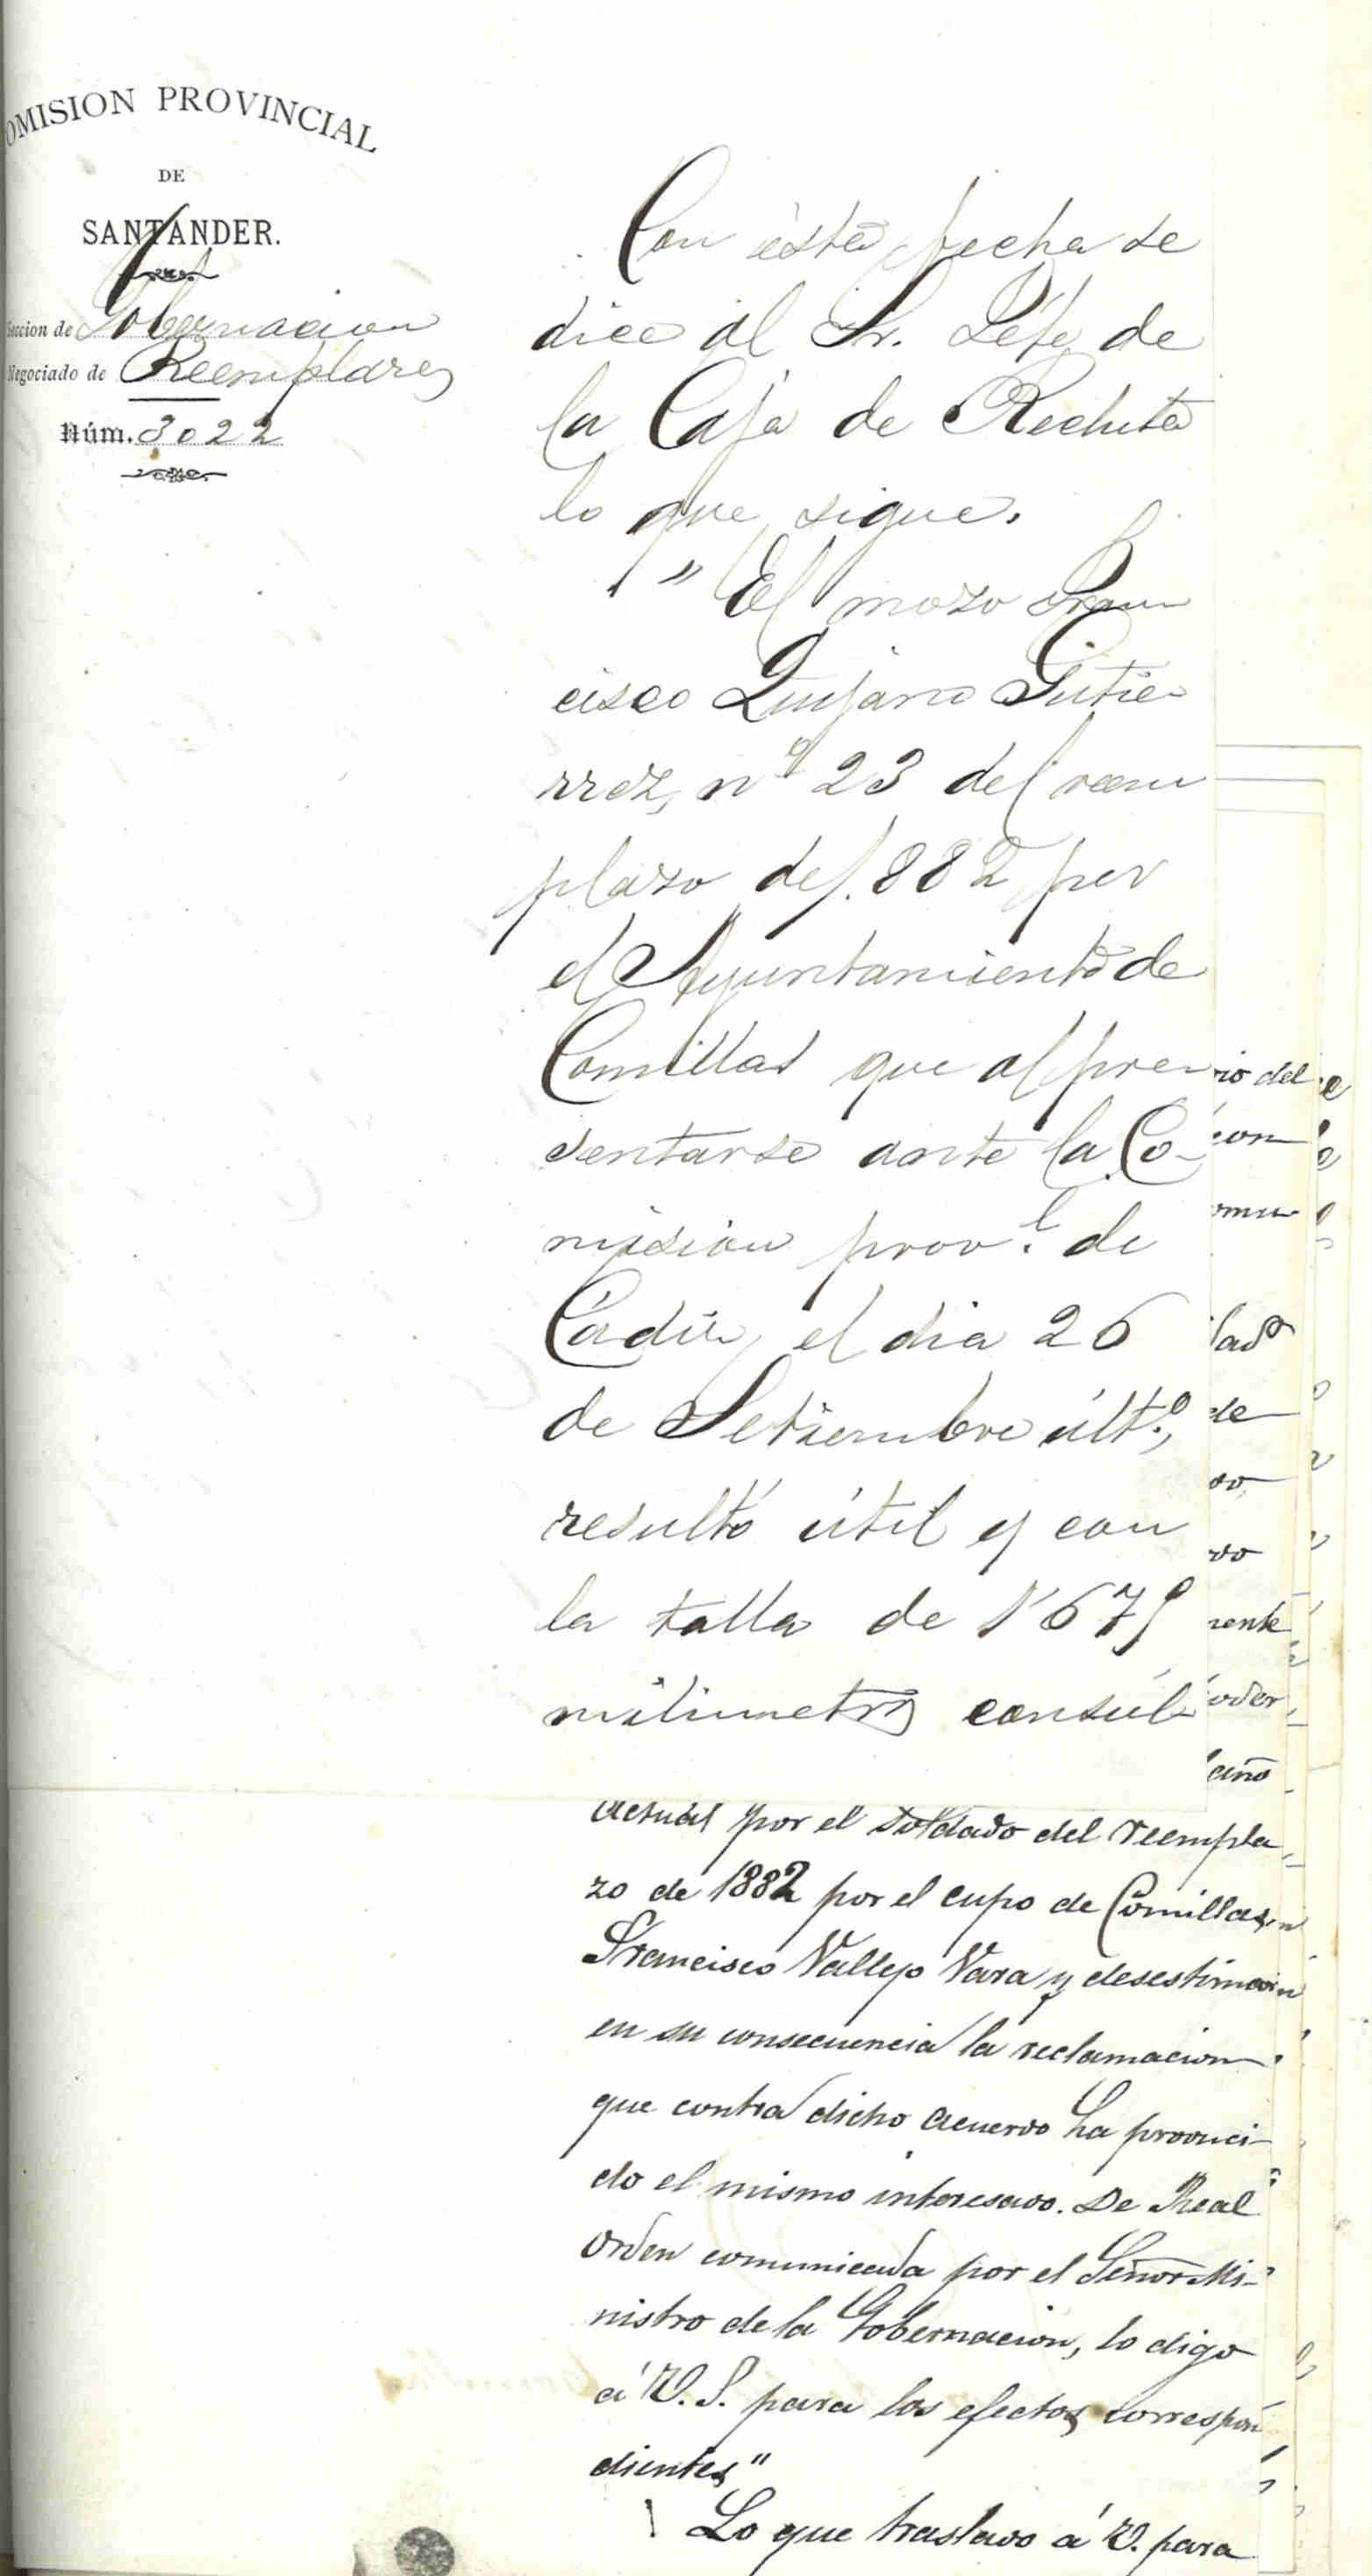 OMISION PROVINCIAL
DE
SANTANDER.
eccion de Gobernacion
Negociado de Reemplazos
Núm. 3022
Con ésta fecha se
dice al Sr. Jefe de
la Caja de Recluta
lo que sigue.
" El mozo Fran
cisco Quijano Gutie-
rrez, nº 23 del reem
plazo de 1.882 por
el Ayuntamiento de
Comillas que al pre-
sentarse ante la Co-
mision prov.l de
Cádiz, el dia 26
de Setiembre últ.o,
resultó útil y con
la talla de 1'675
milimetros
rio del
con
omu
lado
de
so
do
rente
oder
año
actual por el soldado del reempla-
zo de 1882 por el cupo de Comillas,
Francisco Vallejo Vara y desestimar
en su consecuencia la reclamacion
que contra dicho acuerdo ha produci-
do el mismo interesado. De Real
orden comunicada por el Señor Mi-
nistro de la Gobernacion, lo digo
á V. S. para los efectos correspon
dientes"
Lo que traslado á V. para